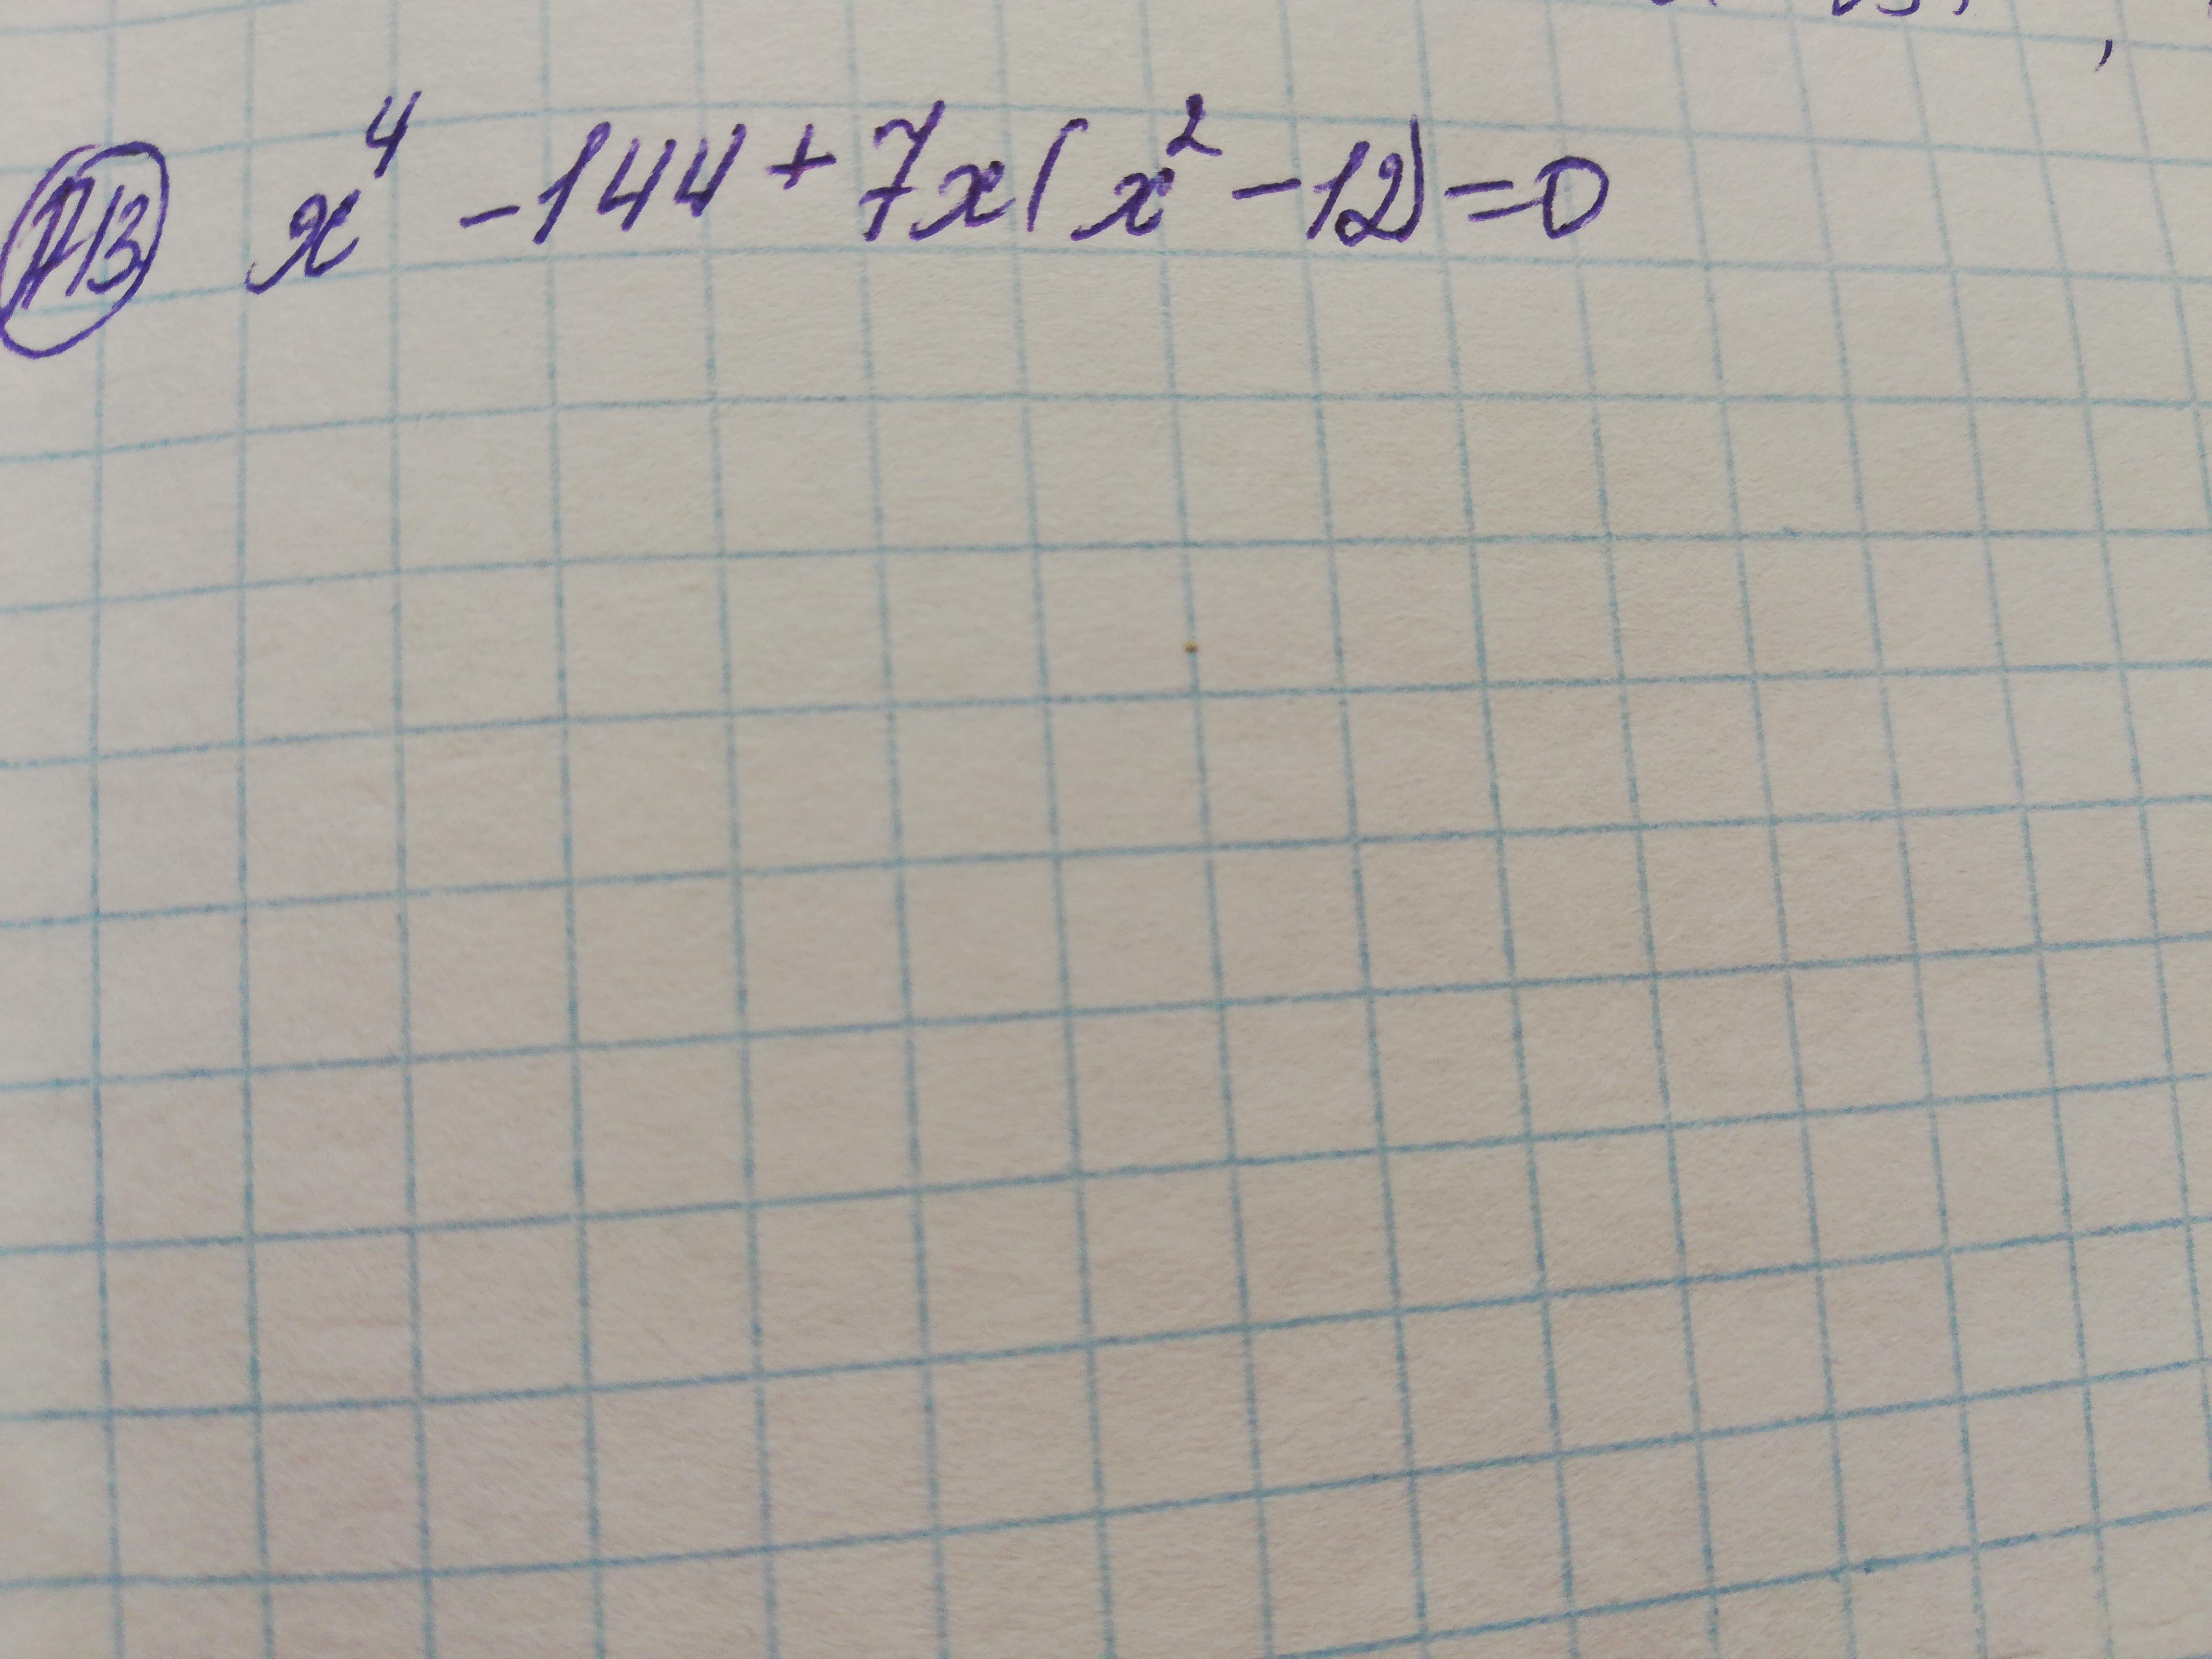 ДЗ x⁴ - 144 + 7x(x² - 12) = 0